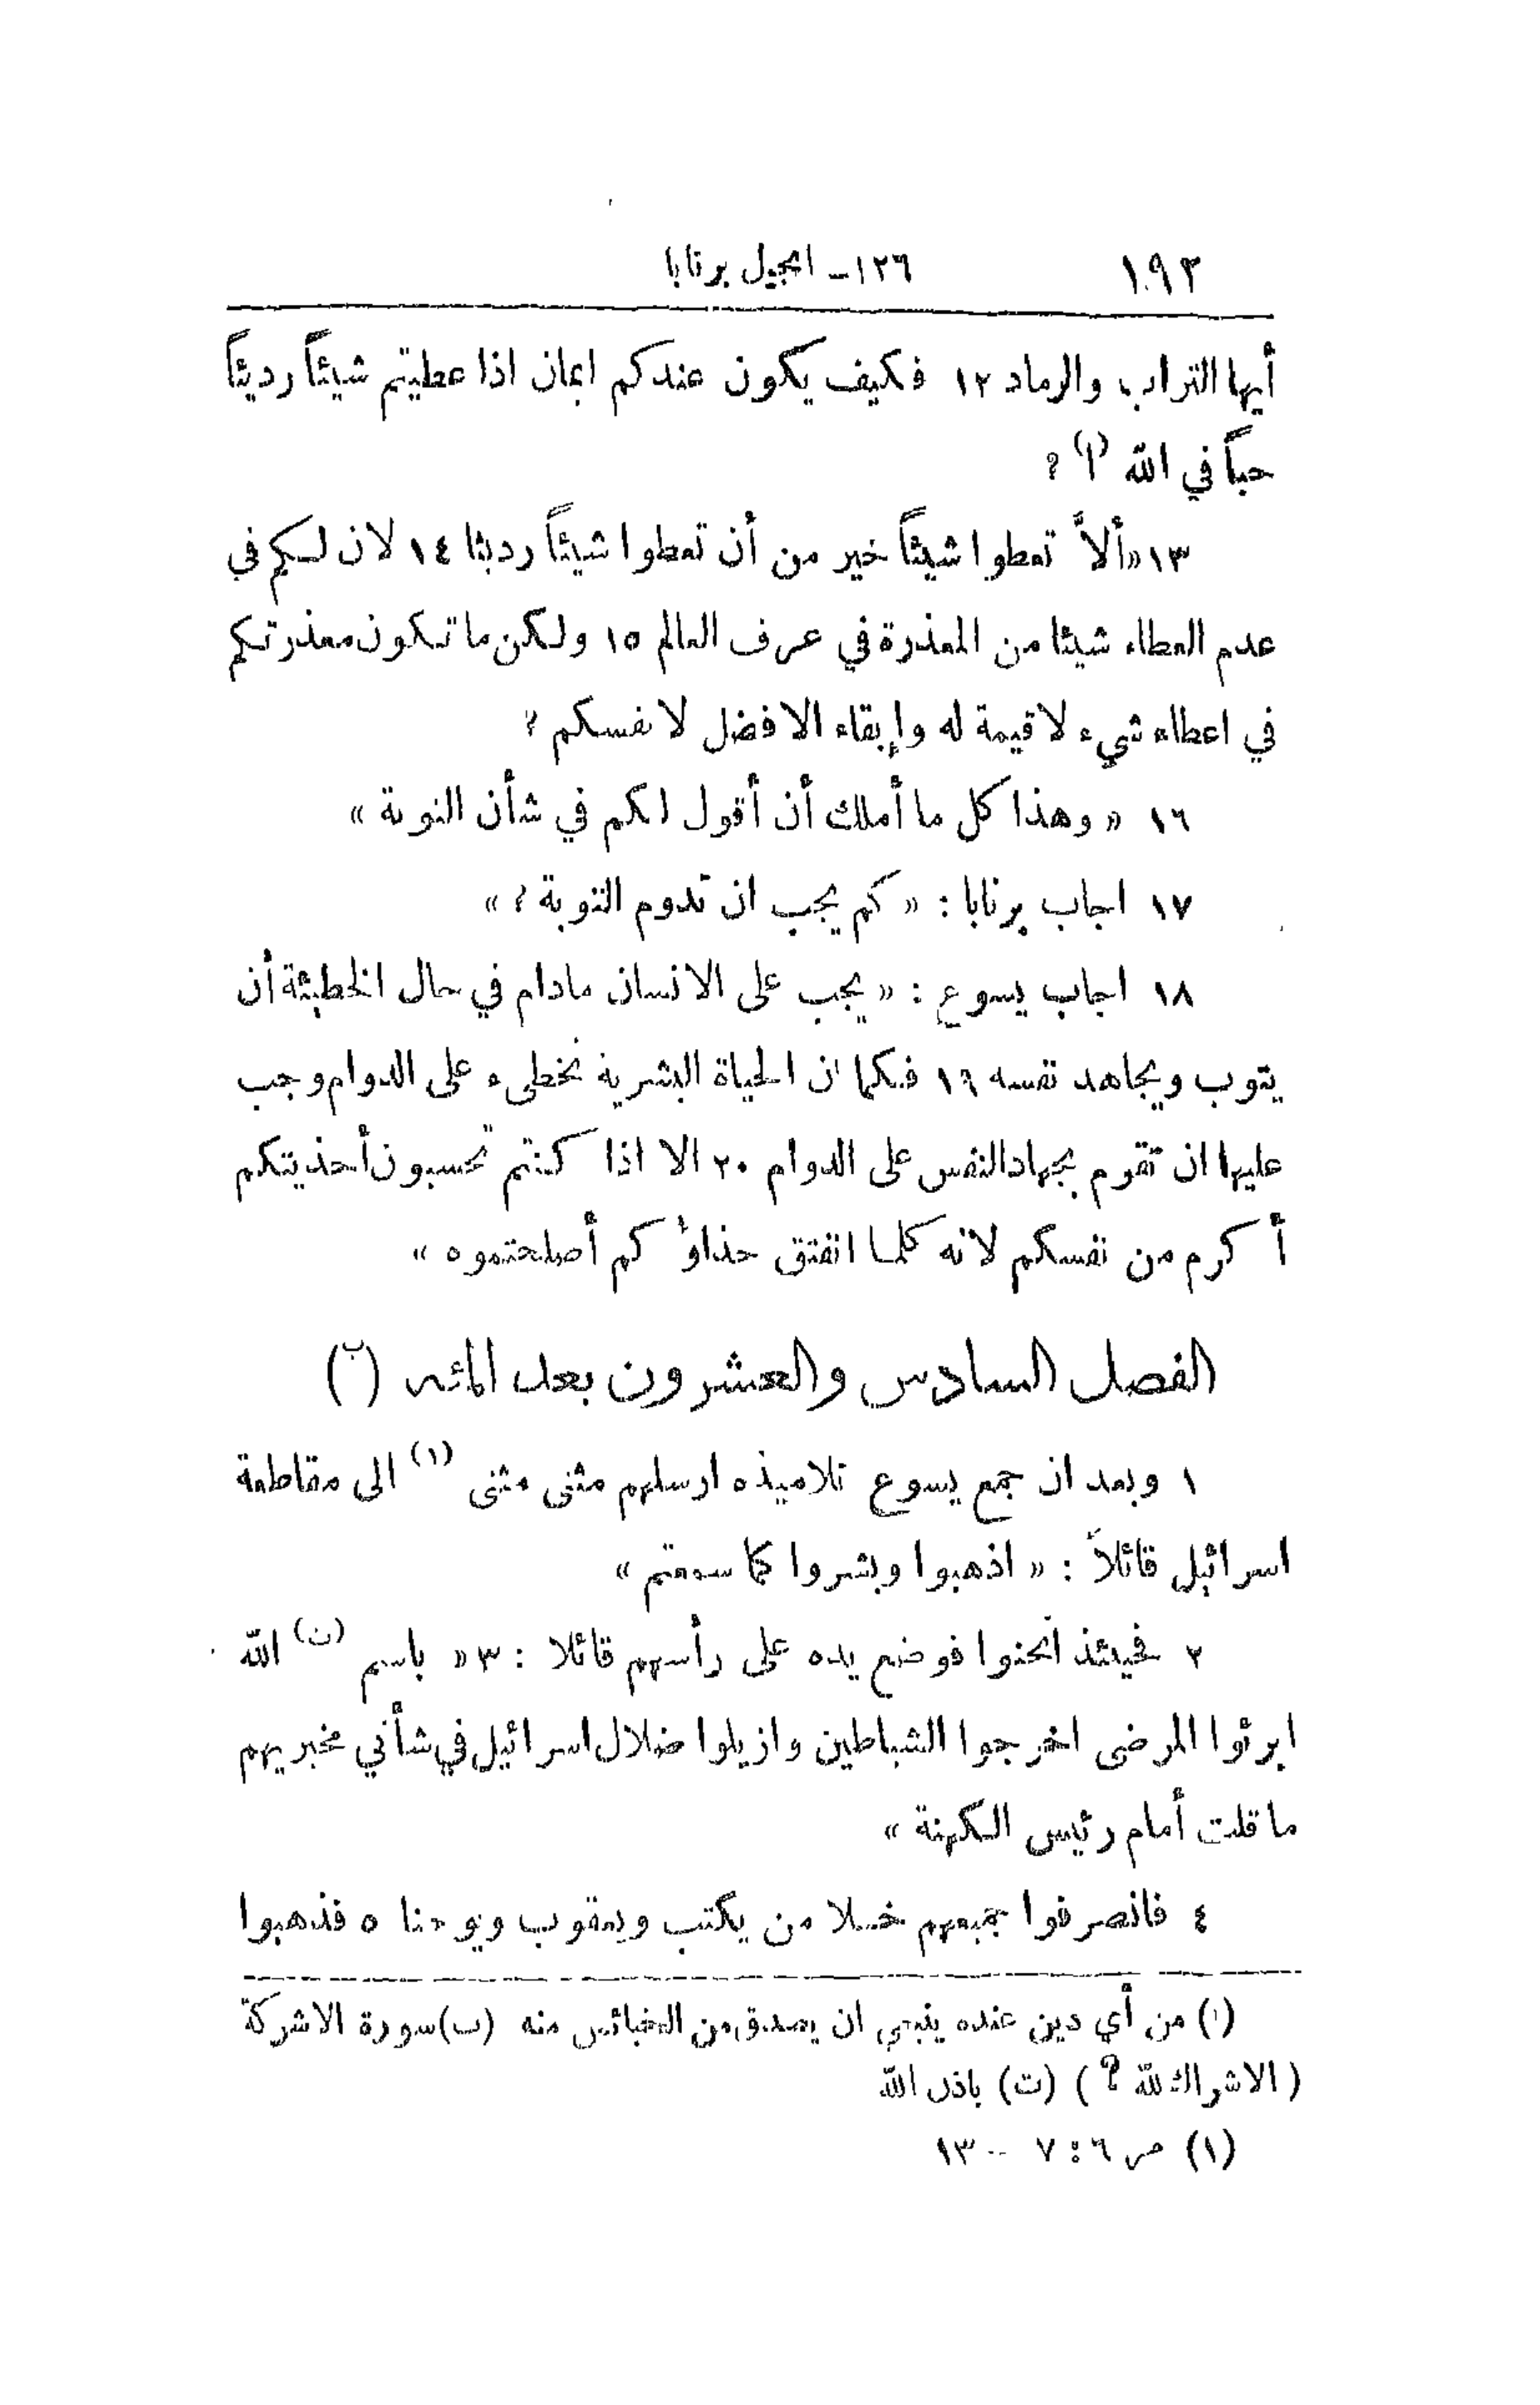 ١٩٢ ١٢٦- انجيل برنابا
أيها التراب والرماد ١٢ فكيف يكون عندكم ايمان اذا عطيتم شيئاً رديئاً
حباً في الله (١) ؟
١٣ «ألاَّ تعطوا شيئاً خير من أن تعطوا شيئاً رديئا ١٤ لان لكم في
عدم العطاء شيئا من المعذرة في عرف العالم ١٥ ولكن ما تكون معذرتكم
في اعطاء شيء لا قيمة له وإبقاء الافضل لانفسكم ؟
١٦ « وهذا كل ما أملك أن أقول لكم في شأن التوبة »
١٧ اجاب برنابا : « كم يجب ان تدوم التوبة ؟ »
١٨ اجاب يسوع : « يجب على الانسان مادام في حال الخطيئة أن
يتوب ويجاهد نفسه ١٩ فكما ان الحياة البشرية تخطىء على الدوام وجب
عليها ان تقوم بجهاد النفس على الدوام ٢٠ الا اذا كنتم تحسبون أحذيتكم
أكرم من نفسكم لانه كلما انفتق حذاؤكم أصلحتموه »
الفصل السادس والعشرون بعد المائه (ب)
١ وبعد ان جمع يسوع تلاميذه ارسلهم مثنى مثنى (١) الى مقاطعة
اسرائيل قائلاً : « اذهبوا وبشروا كما سمعتم »
٢ فحينئذ انحنوا فوضع يده على رأسهم قائلا : ٣ « باسم (ت) الله
ابرئوا المرضى اخرجوا الشياطين وازيلوا ضلال اسرائيل في شأني مخبريهم
ما قلت أمام رئيس الكهنة »
٤ فانصرفوا جميعهم خلا من يكتب ويعقوب ويوحنا ٥ فذهبوا
(١) من أي دين عنده ينبغي ان يصدق من الخبائس منه (ب) سورة الاشركة
(الاشراك لله ؟) (ت) باذن الله
(١) مر ٦ : ٧ -- ١٣